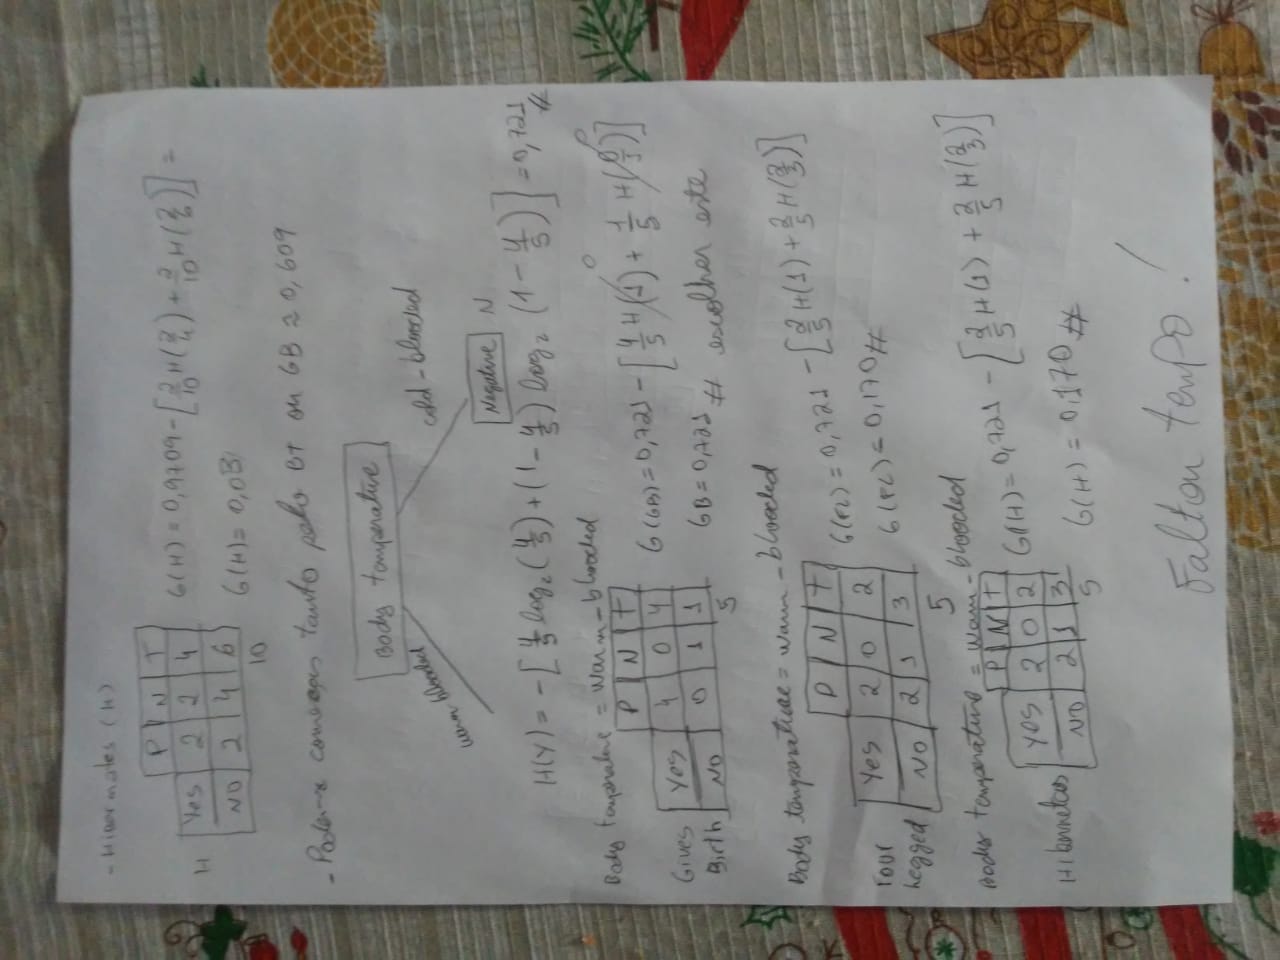 - Hibernates (H)
P N T
H Yes 2 2 4
NO 2 4 6
10
G(H) = 0,9709 - [2/10 H(2/4) + 2/10 H(2/6)] =
G(H) = 0,0
- Pode-se começar tanto pelo BT ou GB ≈ 0,609
Body temperative
warm blooded
cold - blooded
Negative N
H(Y) = -[4/5 log₂(4/5) + (1 - 4/5) log₂(1 - 4/5)] = 0,721 #
Body temperature = warm - blooded
P N T
Gives Birth
Yes 4 0 4
NO 0 1 1
5
G(GB) = 0,721 - [4/5 H(1) + 1/5 H(0/1)]
0 0
GB = 0,721 # escolher este
Body temperature = warm - blooded
P N T
Four Legged
Yes 2 0 2
NO 2 1 3
5
G(FL) = 0,721 - [2/5 H(1) + 2/5 H(2/3)]
G(FL) = 0,170 #
Body temperature = warm - blooded
P N T
YES 2 0 2
NO 2 1 3
5
G(H) = 0,721 - [2/5 H(1) + 2/5 H(2/3)]
G(H) = 0,170 #
Faltou tempo !